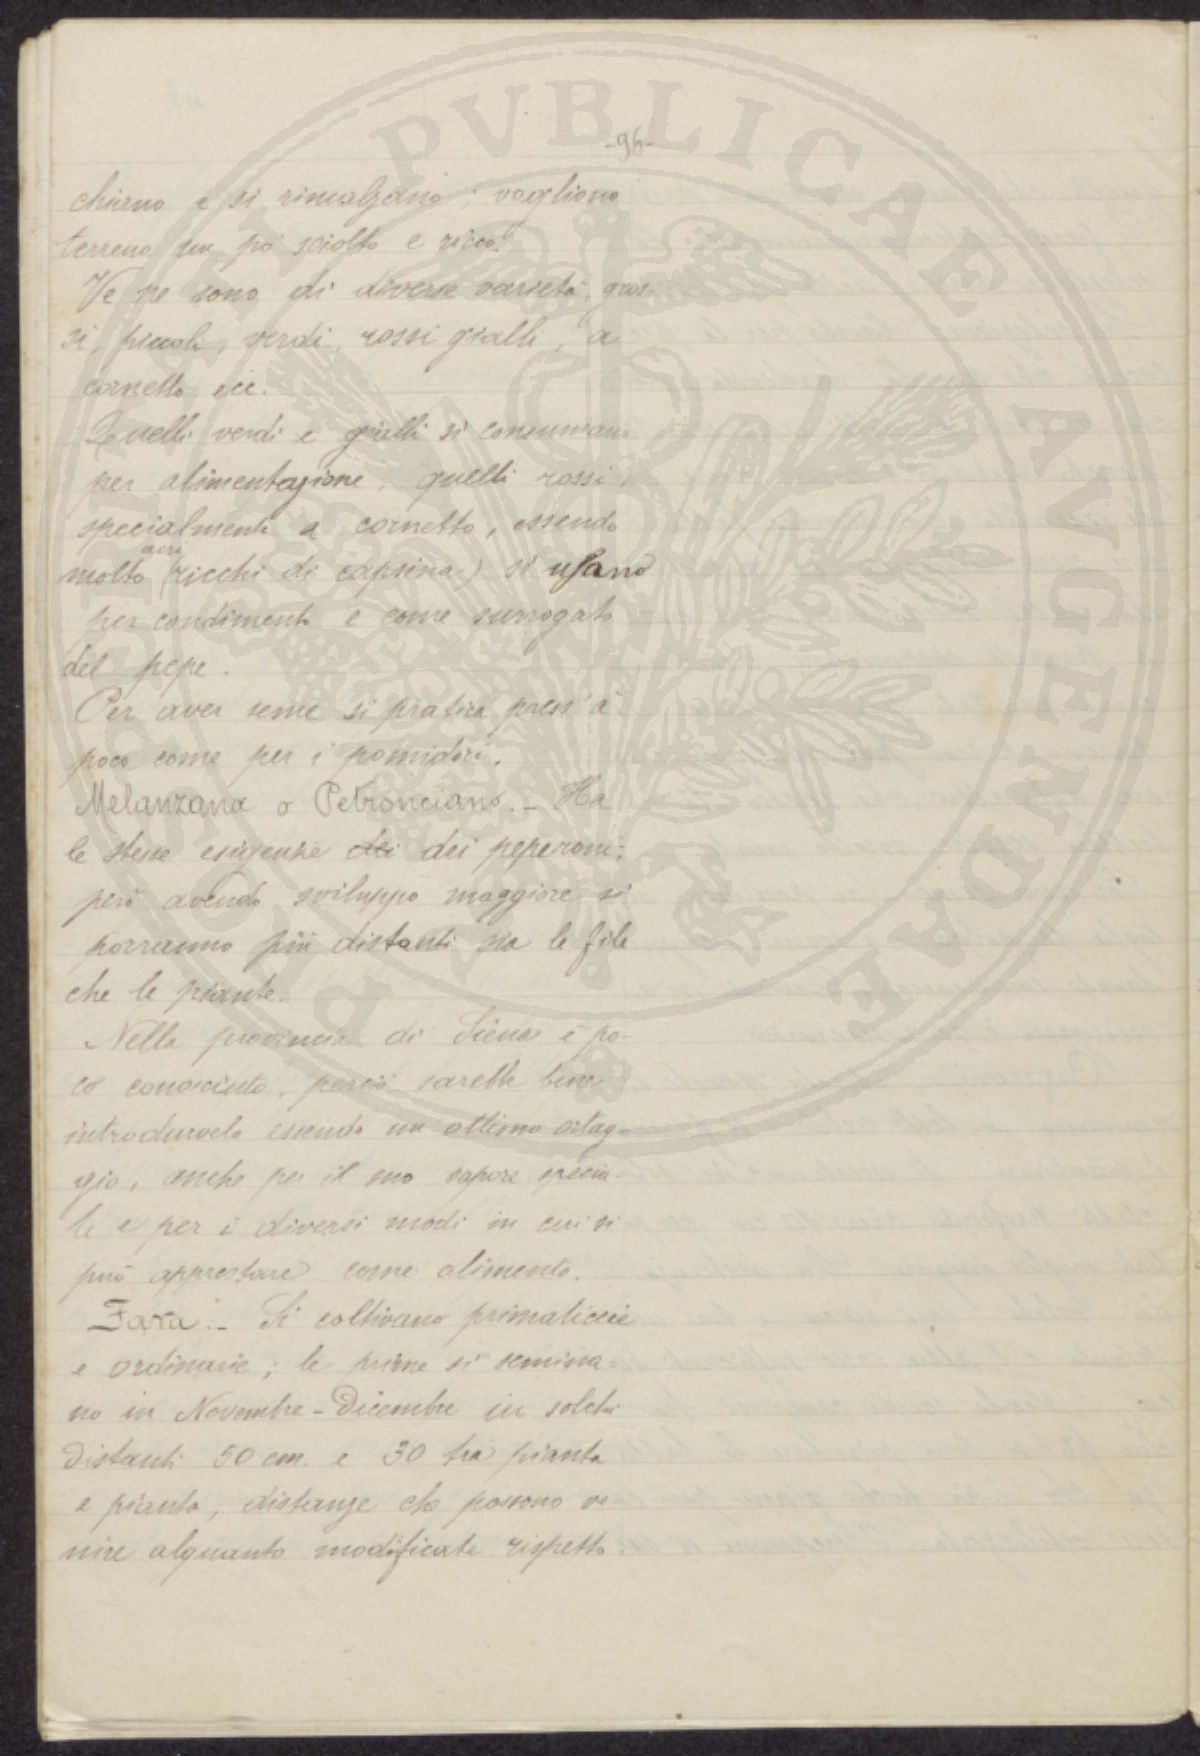 -96-
chiarno e si rincalzano; vogliono
terreno un po' sciolto e ricco.
Ve ne sono di diverse varietà, gros-
si, piccoli, verdi, rossi gialli, a
cornetto ecc.
Quelli verdi e gialli si consumano
per alimentazione, quelli rossi,
specialmente a cornetto, essendo
molto acri (ricchi di capsina) si usano
per condimento e come surrogato
del pepe.
Per aver seme si pratica press'a
poco come per i pomidori.
Melanzana o Petronciano. - Ha
le stesse esigenze dei dei peperoni;
però avendo sviluppo maggiore si
porranno più distanti sia le file
che le piante.
Nella provincia di Siena è po-
co conosciuto, perciò sarebbe bene
introdurvelo essendo un ottimo ortag-
gio, anche per il suo sapore specia-
le e per i diversi modi in cui si
può apprestare come alimento.
Fava. - Si coltivano primaticcie
e ordinarie; le prime si semina-
no in Novembre - Dicembre in solchi
distanti 50 cm. e 30 tra pianta
e pianta, distanze che possono ve-
nire alquanto modificate rispetto
PVBLICAE AVGENDAE